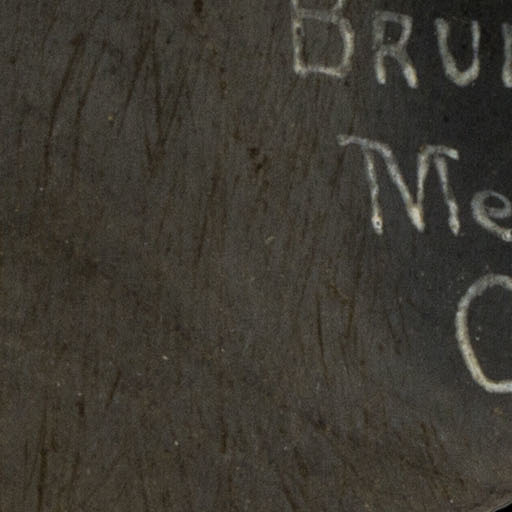 BRU
Me